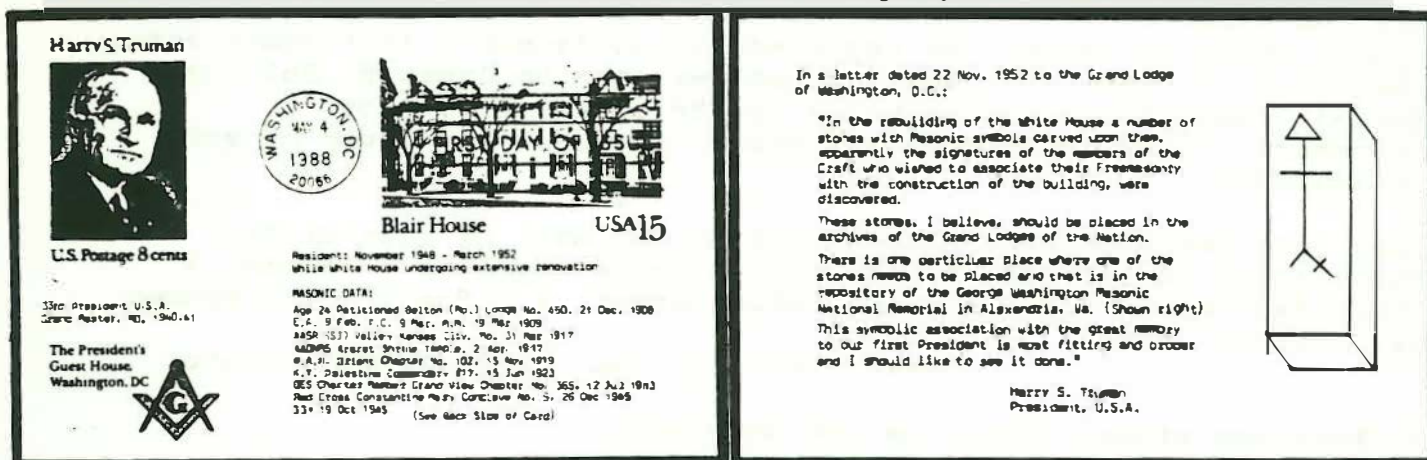 Harry S. Truman
U.S. Postage 8 cents
33rd President U.S.A.
Grand Master, Mo. 1940-41
The President's
Guest House,
Washington, DC
G
WASHINGTON, DC
MAY 4
1988
20066
FIRST DAY OF ISSUE
Blair House
USA 15
Resident: November 1948 - March 1952
While White House undergoing extensive renovation
MASONIC DATA:
Age 24 Petitioned Belton (Mo.) Lodge No. 450, 21 Dec. 1908
E.A. 9 Feb. F.C. 9 Mar. M.M. 19 Mar 1909
AASR (SJ) Valley Kansas City, Mo. 31 Mar 1917
AAONMS Ararat Shrine Temple, 2 Apr. 1917
R.A.M. Orient Chapter No. 102, 15 Nov 1919
K.T. Palestine Commandery #17, 15 Jun 1923
OES Charter Member Grand View Chapter No. 365, 12 Jul 1943
Red Cross Constantine Conclave No. 5, 26 Dec 1945
33° 19 Oct 1945
(See Back Side of Card)
In a letter dated 22 Nov. 1952 to the Grand Lodge
of Washington, D.C.:
"In the rebuilding of the White House a number of
stones with Masonic symbols carved upon them,
apparently the signatures of the members of the
Craft who wished to associate their Freemasonry
with the construction of the building, were
discovered.
These stones, I believe, should be placed in the
archives of the Grand Lodges of the Nation.
There is one particluar place where one of the
stones needs to be placed and that is in the
repository of the George Washington Masonic
National Memorial in Alexandria, Va. (Shown right)
This symbolic association with the great memory
to our first President is most fitting and proper
and I should like to see it done."
Harry S. Truman
President, U.S.A.